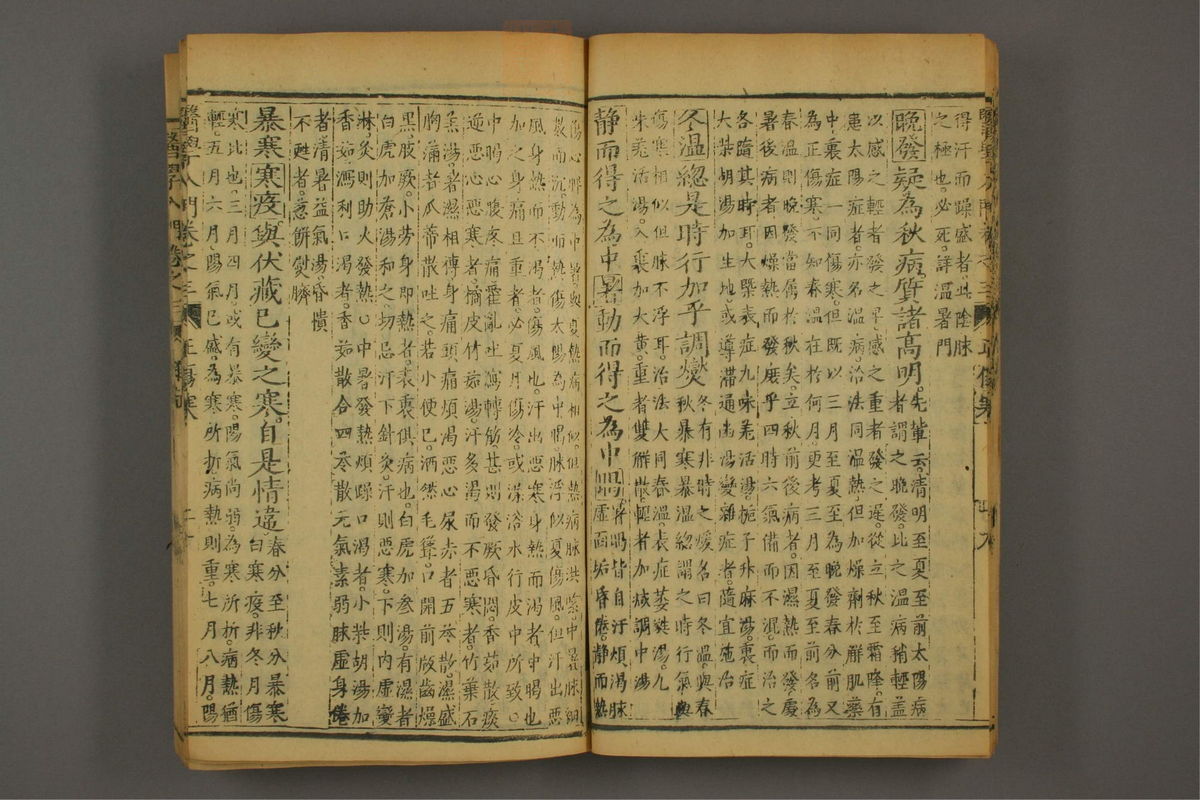 得汗而躁盛者此陰脉
之極也必死詳溫暑門
晚發疑為秋病質諸高明
先輩云清明至夏至前太陽病
者謂之晚發比之溫病稍輕盖
以感之輕者發之早感之重者發之遲從立秋至霜降有
患太陽症者亦名溫病治法同溫熱但加燥劑於解肌藥
中裏症一同傷寒但既以三月至夏至為晚發春分前又
為正傷寒不知春溫在於何月更考三月至夏至前名為
春溫則晚發當属於秋矣立秋前後病者因濕熱而發處
暑後病者因燥熱而發庶乎四時六氣備而不混而治之
各隨其時耳大槩表症九味羗活湯梔子升麻湯裏症
大柴胡湯加生地或導滞通幽湯變雜症者隨宜施治
冬温緫是時行加乎調燮
冬有非時之煖名曰冬溫與春
秋暴寒暴溫緫謂之時行氣與
傷寒相似但脉不浮耳治法大同春溫表症萎蕤湯九
味羗活湯入裏加大黃重者雙解散輕者加减調中湯
静而得之為中暑動而得之為中暍
暑暍皆自汗煩渴脉
虛面垢昏倦静而熱
傷心脾為中暑與身熱病相似但熱病脉洪緊中暑脉細
而沉動而熱傷太陽為中暍脉浮似夏傷風但汗出惡
風身熱而不渴者傷風也汗出惡寒身熱而渴者中暍也
加之身痛且重者必夏月傷冷或澡浴水行皮中所致
中暍惡心腹疼痛霍亂吐瀉轉筋甚則發厥昏悶香茹散痰
逆惡心惡寒者橘皮竹茹湯汗多渴而不惡寒者竹葉石
羔湯暑濕相傳身痛頭痛煩渴惡心尿赤者五苓散濕盛
胸滿者瓜蒂散吐之若小便已洒然毛聳口開前板齒燥
黑肢厥小劳身即熱者表裏俱病也白虎加參湯有濕者
白虎加蒼湯和之切忌汗下針灸汗則惡寒下則內虛變
淋灸則助火發熱黄中暑發熱煩躁口渴者小柴胡湯加
香茹瀉利口渴者香茹散合四苓散元氣素弱脉虛身倦
者清暑益氣湯昏憒
不甦者蒽餅熨臍
暴寒寒疫與伏藏已變之寒自是情違
春分至秋分暴寒
曰寒疫非冬月傷
寒比也三月四月或有暴寒陽氣尚弱為寒所折病熱猶
輕五月六月陽氣已盛為寒所折病熱則重七月八月陽
醫學入門卷之三 正傷寒 二十